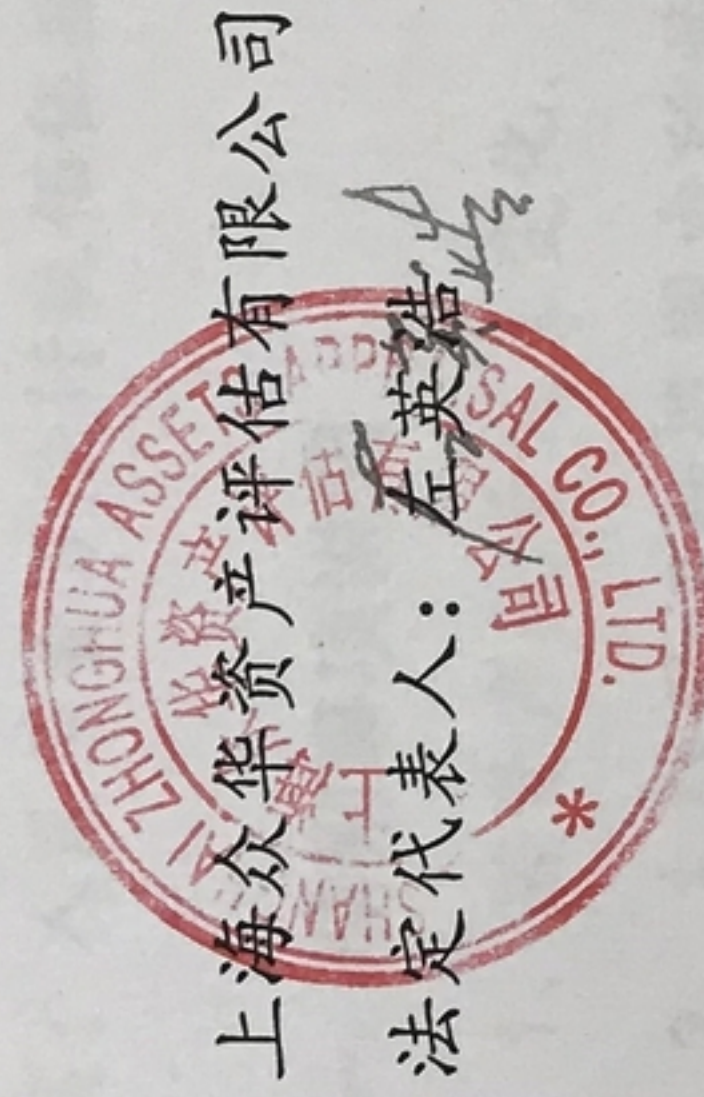 上海众华资产评估有限公司
法定代表人：左英浩
SHANGHAI ZHONGHUA ASSETS APPRAISAL CO., LTD.
上海众华资产评估有限公司